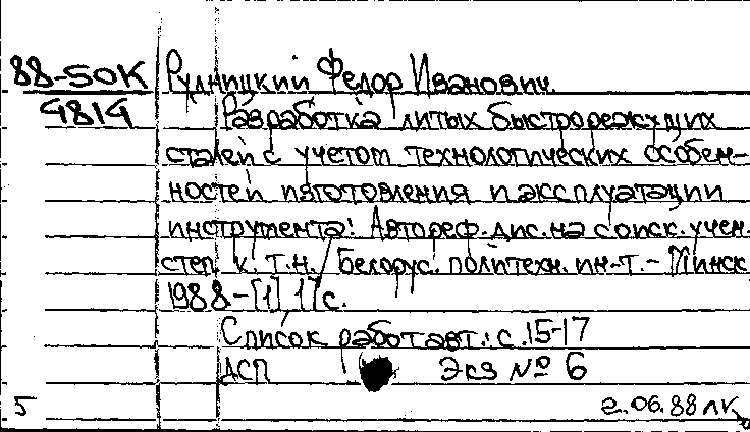 88-50К Рудницкий Федор Иванович.
4814 Разработка литых быстрорежущих
сталей с учетом технологических особен-
ностей изготовления и эксплуатации
инструмента: Автореф. дис. на соиск. учен.
степ. к. т. н. / Белорус. политехн. ин-т. - Минск
1988 - [1] 17 с.
Список работ авт.: с. 15-17
АСП Экз № 6
5 2.06.88 ЛК